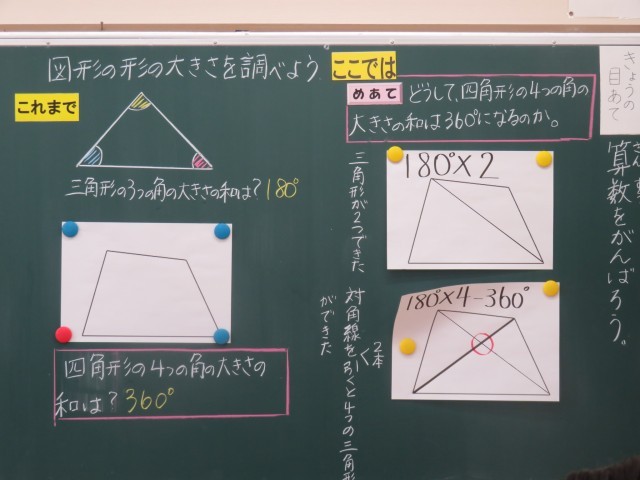 図形の形の大きさを調べよう
これまで
三角形の3つの角の大きさの和は?180°
四角形の4つの角の大きさの
和は?360°
ここでは
めあて
どうして、四角形の4つの角の
大きさの和は360°になるのか。
180°×2
三角形が2つできた
180°×4-360°
対角線を2本引くと4つの三角形
ができた
きょうの
目あて
算数をがんばろう。